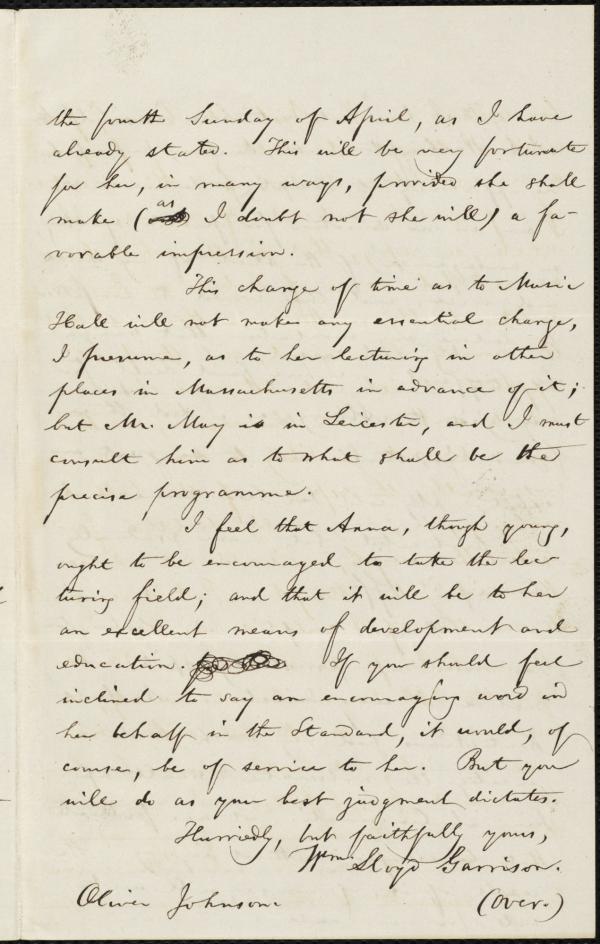 the fourth Sunday of April, as I have
already stated. This will be very fortunate
for her, in many ways, provided she shall
make (as I doubt not she will) a fa-
vorable impression.
This change of time as to Music
Hall will not make any essential change,
I presume, as to her lecturing in other
places in Massachusetts in advance of it;
but Mr. May is in Leicester, and I must
consult him as to what shall be the
precise programme.
I feel that Anna, though young,
ought to be encouraged to take the lec-
turing field; and that it will be to her
an excellent means of development and
education. If you should feel
inclined to say an encouraging word in
her behalf in the Standard, it would, of
course, be of service to her. But you
will do as your best judgment dictates.
Hurriedly, but faithfully yours,
Wm. Lloyd Garrison.
Oliver Johnson.
(over.)